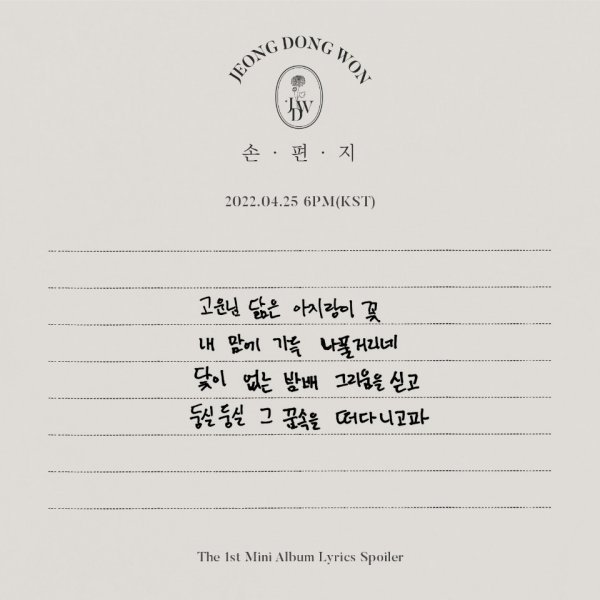 JEONG DONG WON
JDW
손 · 편 · 지
2022.04.25 6PM(KST)
고운님 닮은 아지랑이 꽃
내 맘에 가득 나풀거리네
닻이 없는 밤배 그리움을 싣고
둥실둥실 그 꿈속을 떠다니고파
The 1st Mini Album Lyrics Spoiler